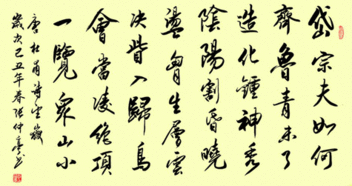 岱宗夫如何
齊魯青未了
造化鍾神秀
陰陽割昏曉
盪胷生層雲
决眥入歸鳥
會當凌絶頂
一覽眾山小
唐杜甫詩望嶽
歲次己丑年春張仲亭書